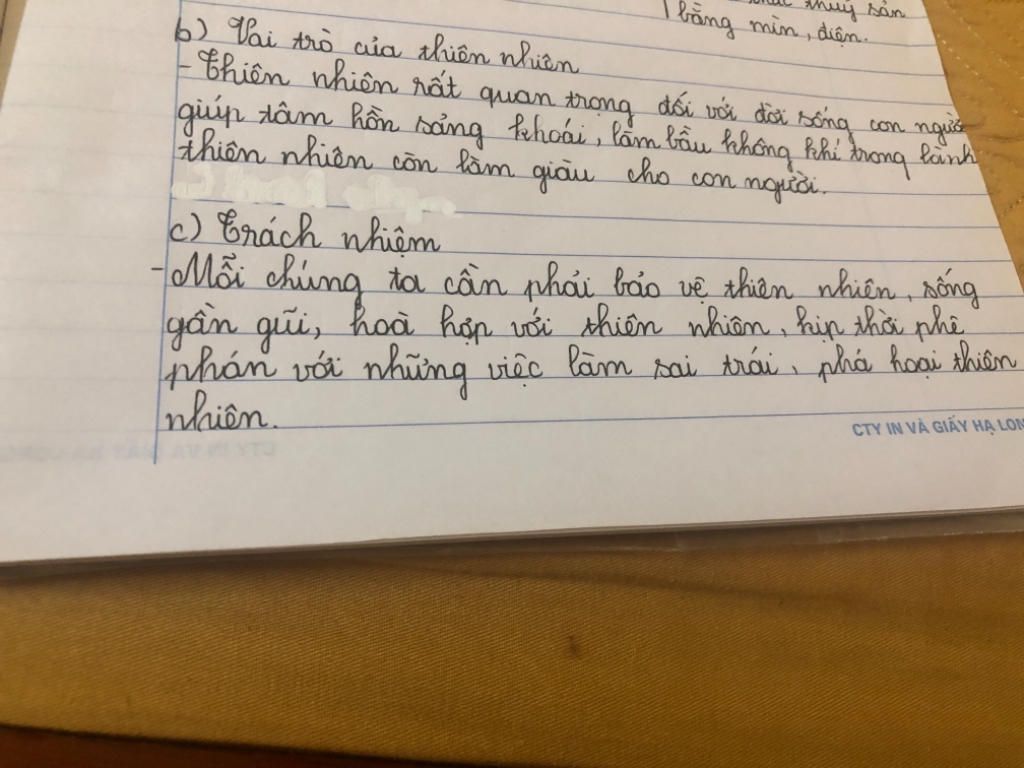 thuỷ sản
bằng mìn, điện.
b) Vai trò của thiên nhiên
- Thiên nhiên rất quan trọng đối với đời sống con người
giúp tâm hồn sảng khoái, làm bầu không khí trong lành
thiên nhiên còn làm giàu cho con người.
c) Trách nhiệm
- Mỗi chúng ta cần phải bảo vệ thiên nhiên, sống
gần gũi, hoà hợp với thiên nhiên, kịp thời phê
phán với những việc làm sai trái, phá hoại thiên
nhiên.
CTY IN VÀ GIẤY HẠ LON